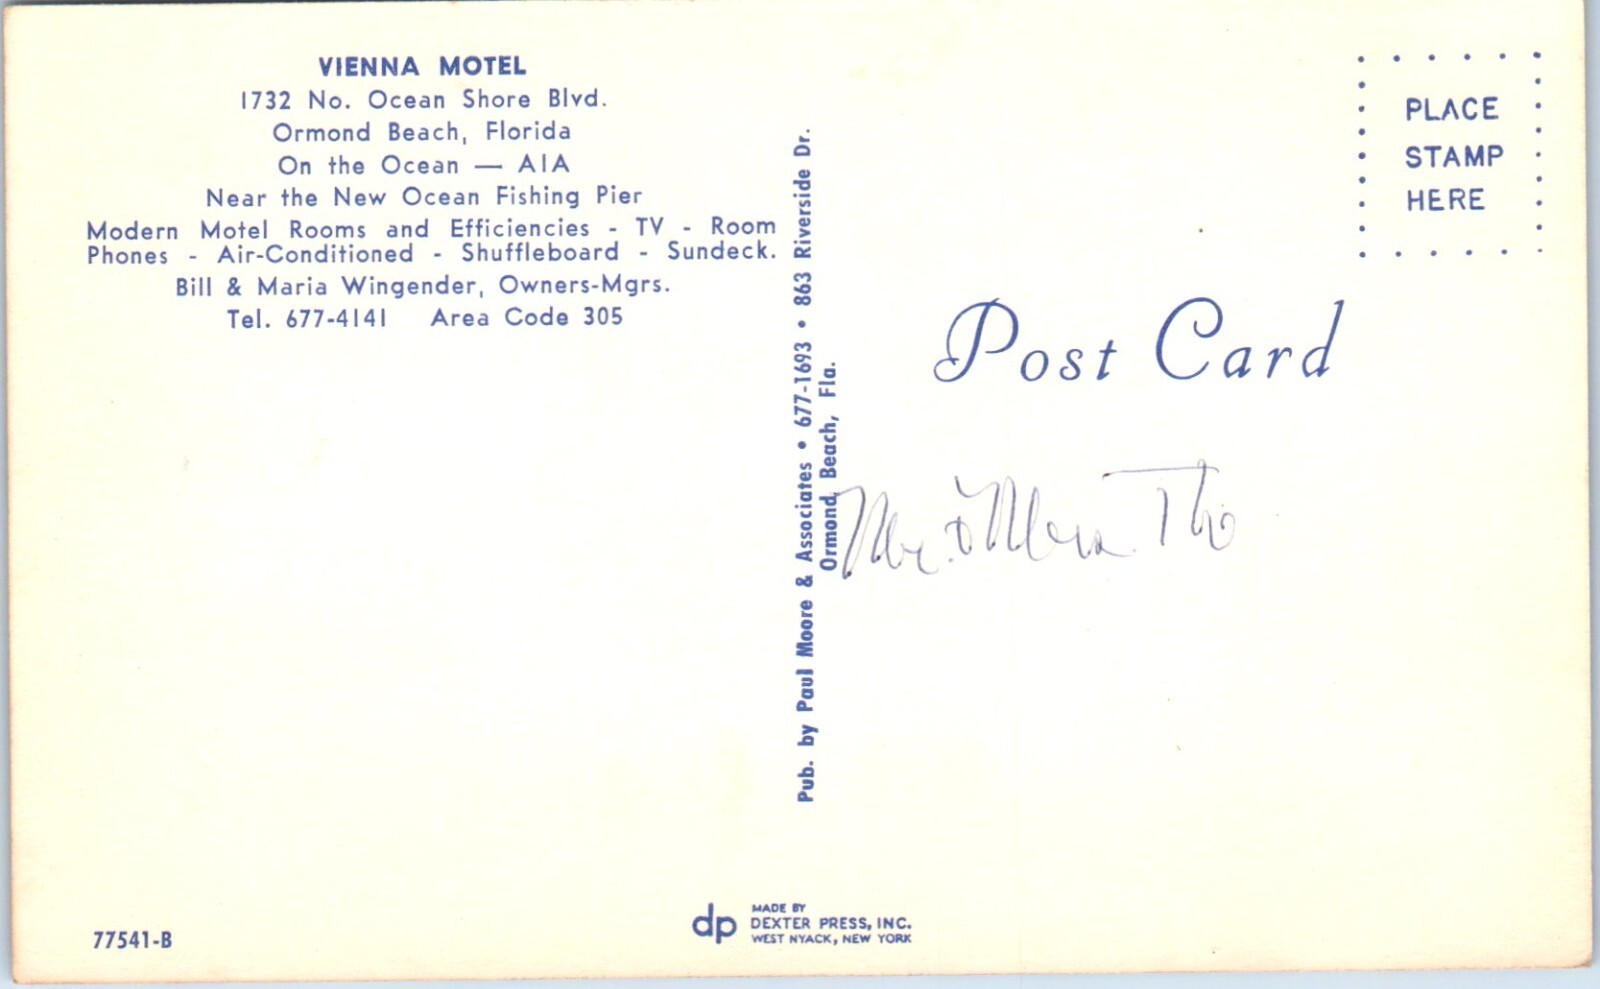 VIENNA MOTEL
1732 No. Ocean Shore Blvd.
Ormond Beach, Florida
On the Ocean — A1A
Near the New Ocean Fishing Pier
Modern Motel Rooms and Efficiencies - TV - Room
Phones - Air-Conditioned - Shuffleboard - Sundeck.
Bill & Maria Wingender, Owners-Mgrs.
Tel. 677-4141 Area Code 305
77541-B
Pub. by Paul Moore & Associates • 677-1693 • 863 Riverside Dr.
Ormond Beach, Fla.
dp
MADE BY
DEXTER PRESS, INC.
WEST NYACK, NEW YORK
PLACE
STAMP
HERE
Post Card
Mr. & Mrs. Tho